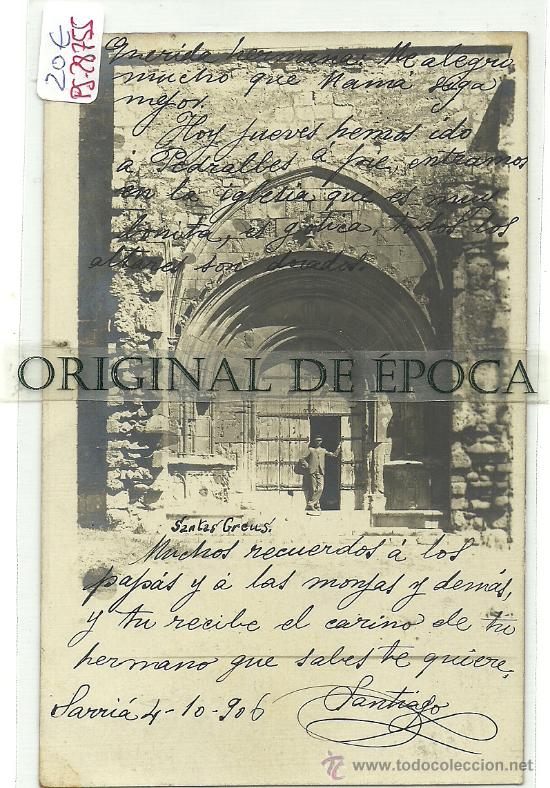 20€
PS-28755
Querida hermana: Me alegro
mucho que Mamá siga
mejor.
Hoy jueves hemos ido
á Pedralbes á pie, entramos
en la iglesia que es muy
bonita, es gótica, todos los
altares son dorados.
ORIGINAL DE ÉPOCA
Santas Creus.
Muchos recuerdos á los
papás y á las monjas y demás,
y tu recibe el carino de tu
hermano que sabes te quiere,
Santiago
Sarriá 4-10-906
www.todocoleccion.net